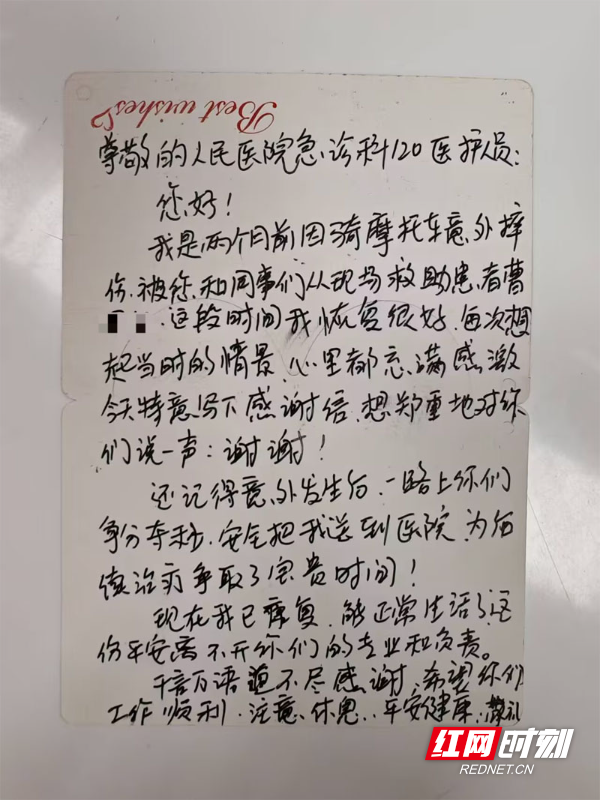 Best wishes
尊敬的人民医院急诊科120医护人员:
您好!
我是两个月前因骑摩托车意外摔
伤.被您和同事们从现场救助患者曹
.这段时间我恢复很好.每次想
起当时的情景.心里都充满感激
今天特意写下感谢信.想郑重地对你
们说一声:谢谢!
还记得意外发生后.一路上你们
争分夺秒.安全把我送到医院.为后
续治疗争取了宝贵时间!
现在我已康复.能正常生活了这
份平安离不开你们的专业和负责。
千言万语道不尽感谢.希望你们
工作顺利.注意休息..平安健康.敬礼
红网时刻
REDNET.CN